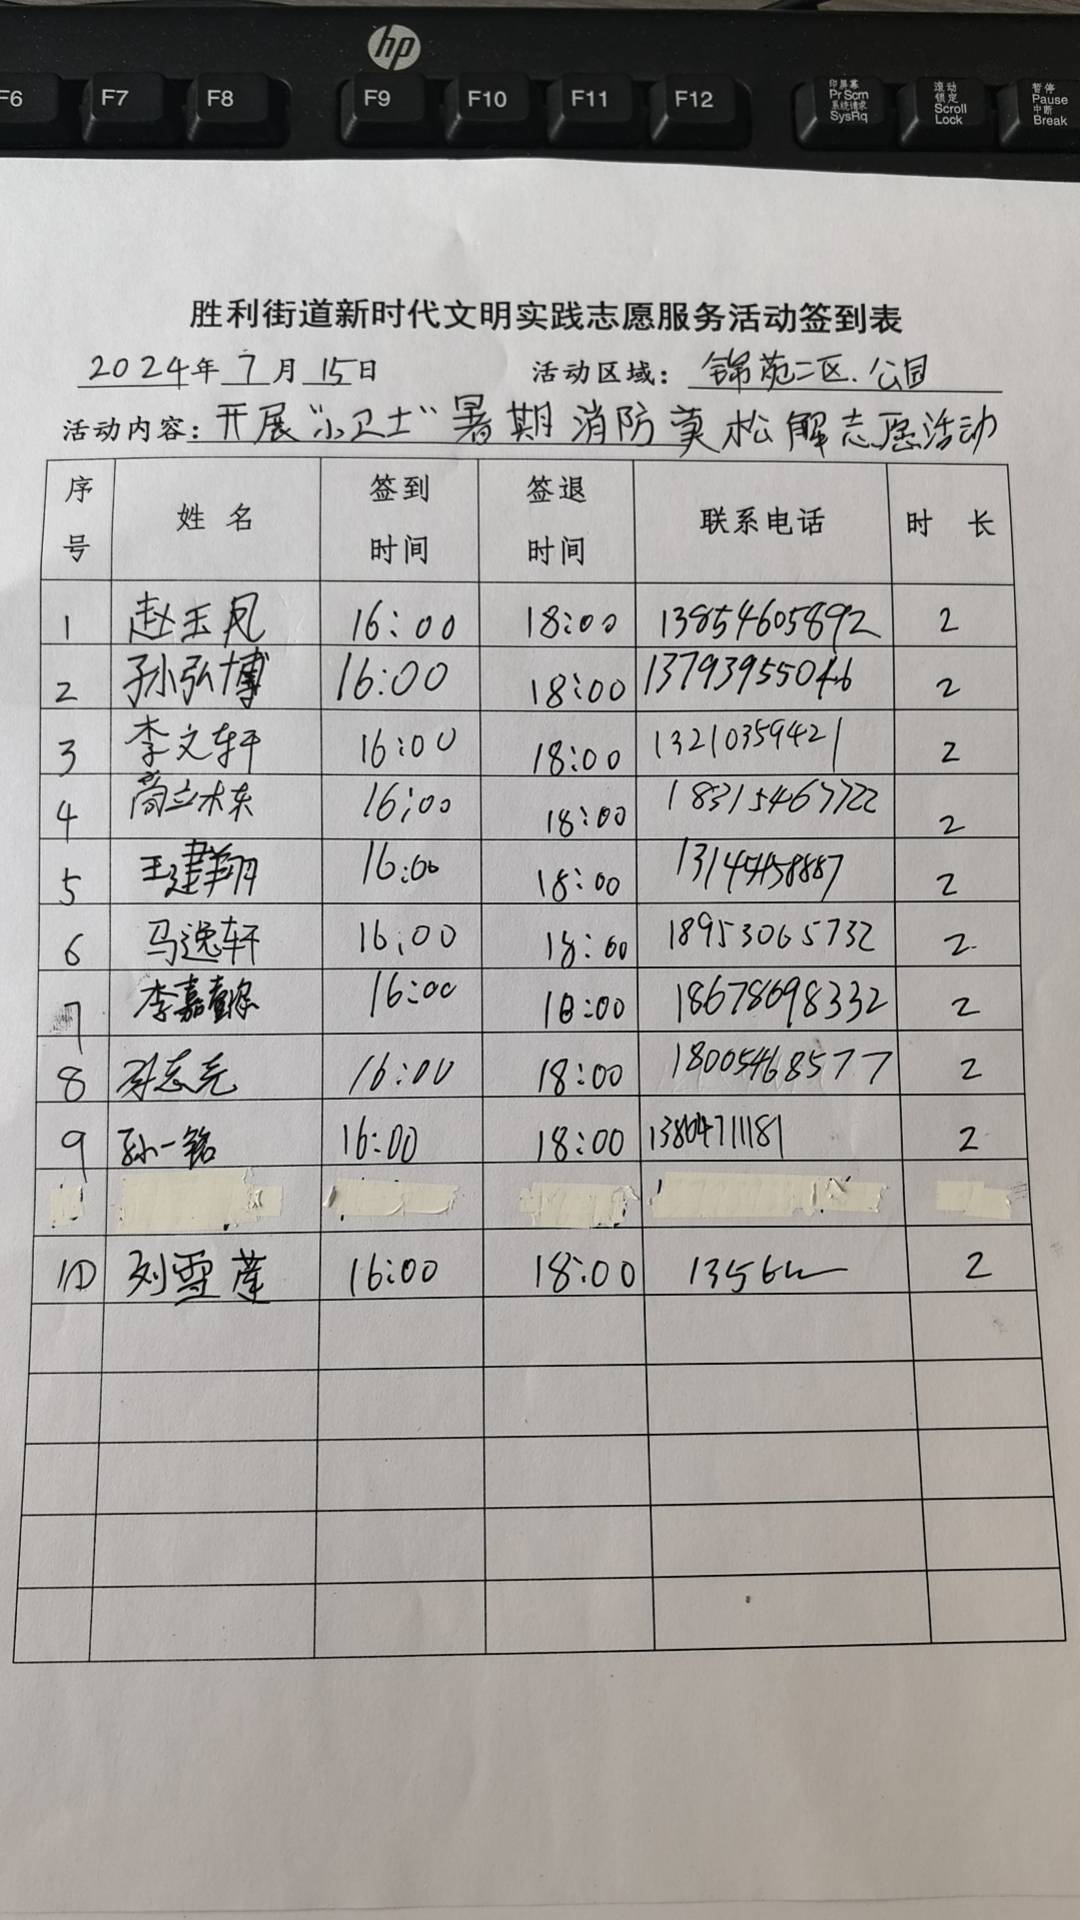 hp
F6 F7 F8 F9 F10 F11 F12
印屏幕 Pr Scrn 系统请求 SysRq
滚动 锁定 Scroll Lock
暂停 Pause 中断 Break
胜利街道新时代文明实践志愿服务活动签到表
2024年7月15日 活动区域：锦苑二区.公园
活动内容：开展“小卫士”暑期消防莫松解志愿活动
序号 姓名 签到时间 签退时间 联系电话 时长
1 赵玉凤 16:00 18:00 13854605892 2
2 孙弘博 16:00 18:00 13793955046 2
3 李文轩 16:00 18:00 13210359421 2
4 16:00 18:00 18315467722 2
5 王建翔 16:00 18:00 2
6 马逸轩 16:00 18:00 18953065732 2
7 李嘉 16:00 18:00 18678698332 2
8 志亮 16:00 18:00 18005468577 2
9 孙一铭 16:00 18:00 2
10 刘雪莲 16:00 18:00 1356 2